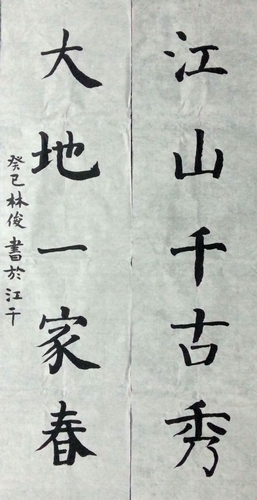 江山千古秀
大地一家春
癸巳林俊書於江干